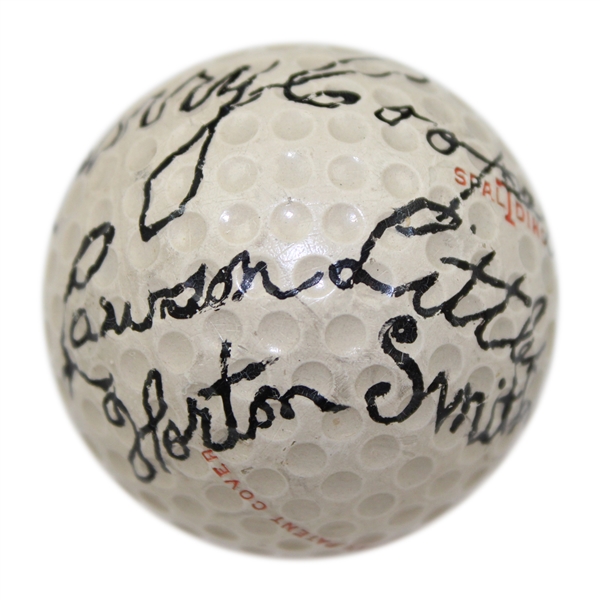 Harry Coop
SPALDING
1
Lawson Little
Horton Smith
PATENT COVER